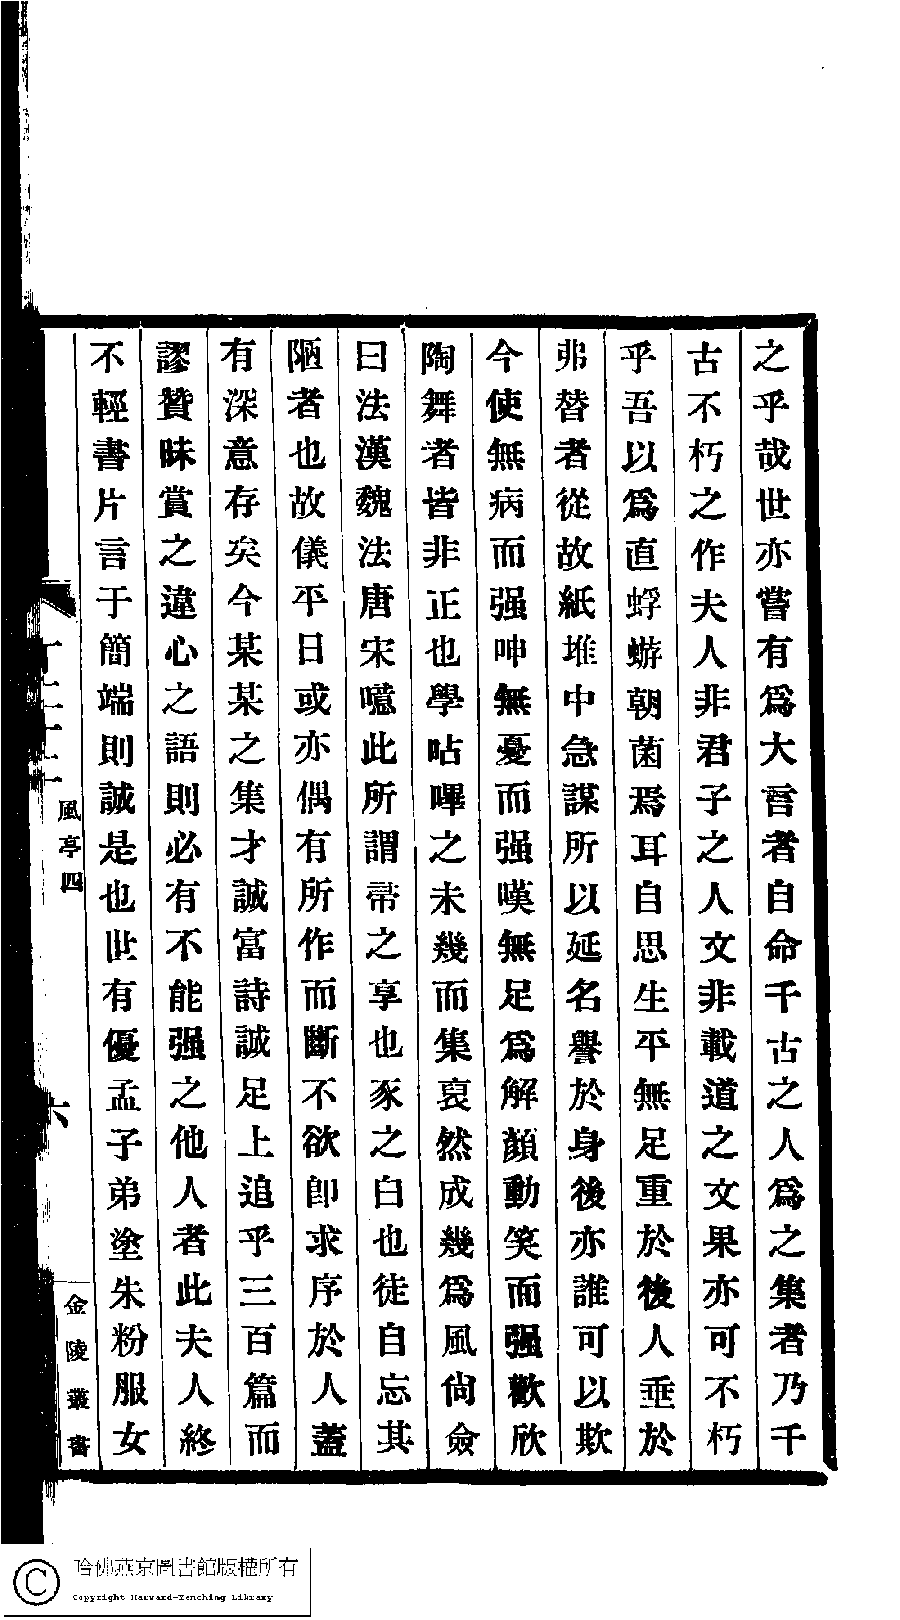 之乎哉世亦嘗有爲大言者自命千古之人爲之集者乃千
古不朽之作夫人非君子之人文非載道之文果亦可不朽
乎吾以爲直蜉蝣朝菌焉耳自思生平無足重於後人垂於
弗替者從故紙堆中急謀所以延名譽於身後亦誰可以欺
今使無病而强呻無憂而强嘆無足爲解顏動笑而强歡欣
陶舞者皆非正也學呫嗶之未幾而集裒然成幾爲風尙僉
曰法漢魏法唐宋噫此所謂帚之享也豕之白也徒自忘其
陋者也故儀平日或亦偶有所作而斷不欲卽求序於人蓋
有深意存矣今某某之集才誠富詩誠足上追乎三百篇而
謬贊昧賞之違心之語則必有不能强之他人者此夫人終
不輕書片言于簡端則誠是也世有優孟子弟塗朱粉服女
風亭四
六
金陵叢書
哈佛燕京圖書館版權所有
Copyright Harvard-Yenching Library